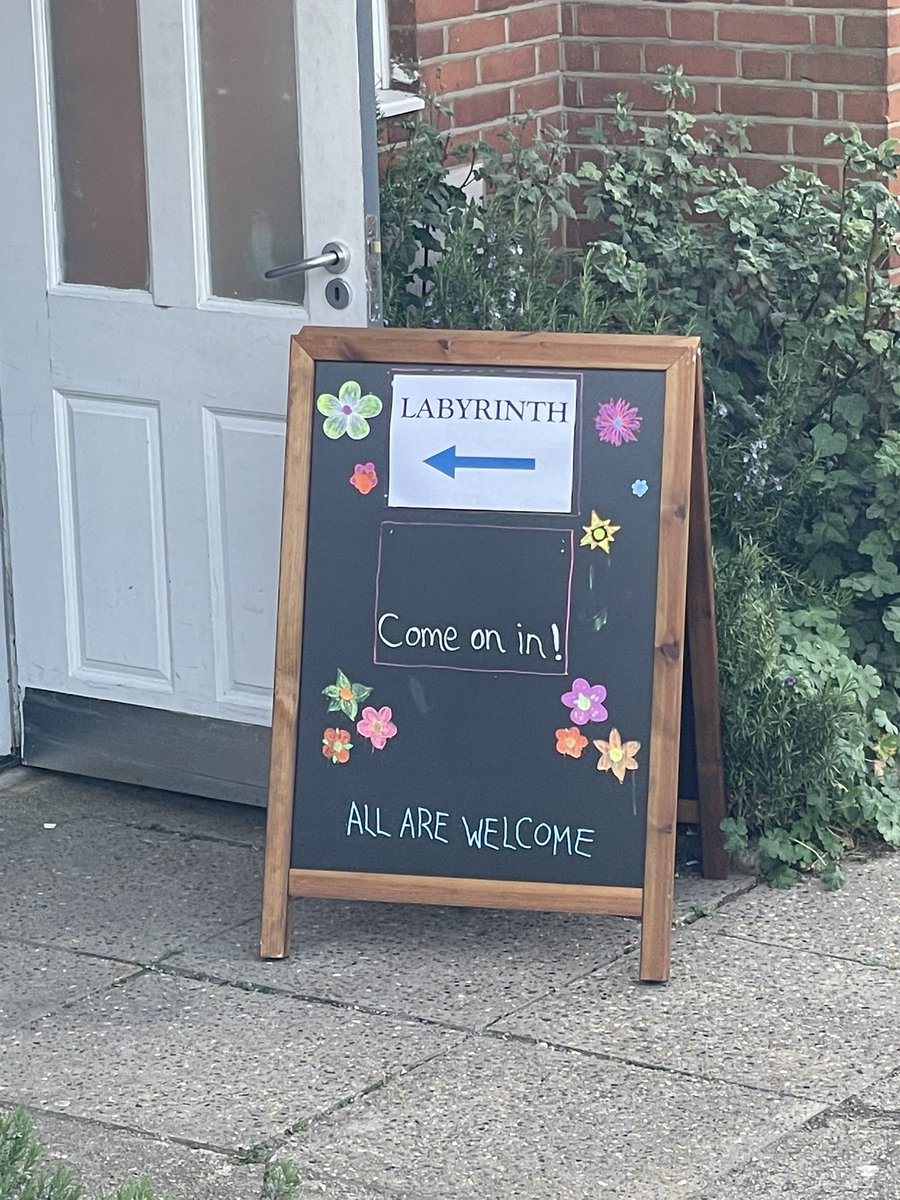 LABYRINTH
Come on in!
ALL ARE WELCOME